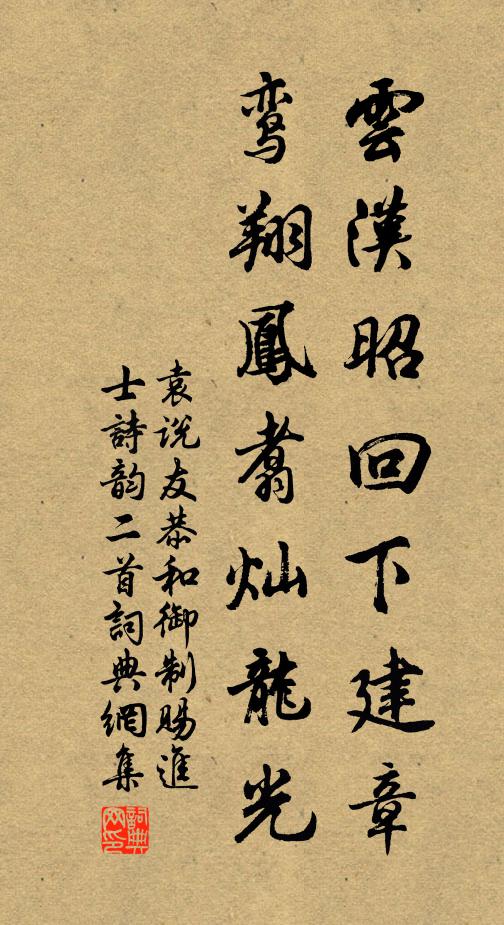 雲漢昭回下建章
鸾翔鳳翥灿龍光
袁说友恭和御制賜進
士詩韵二首詞典網集
詞典网印